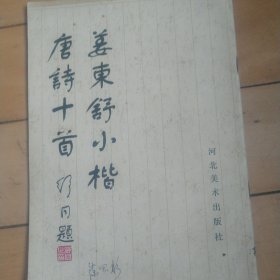 姜東舒小楷
唐詩十首
舒同題
河北美术出版社